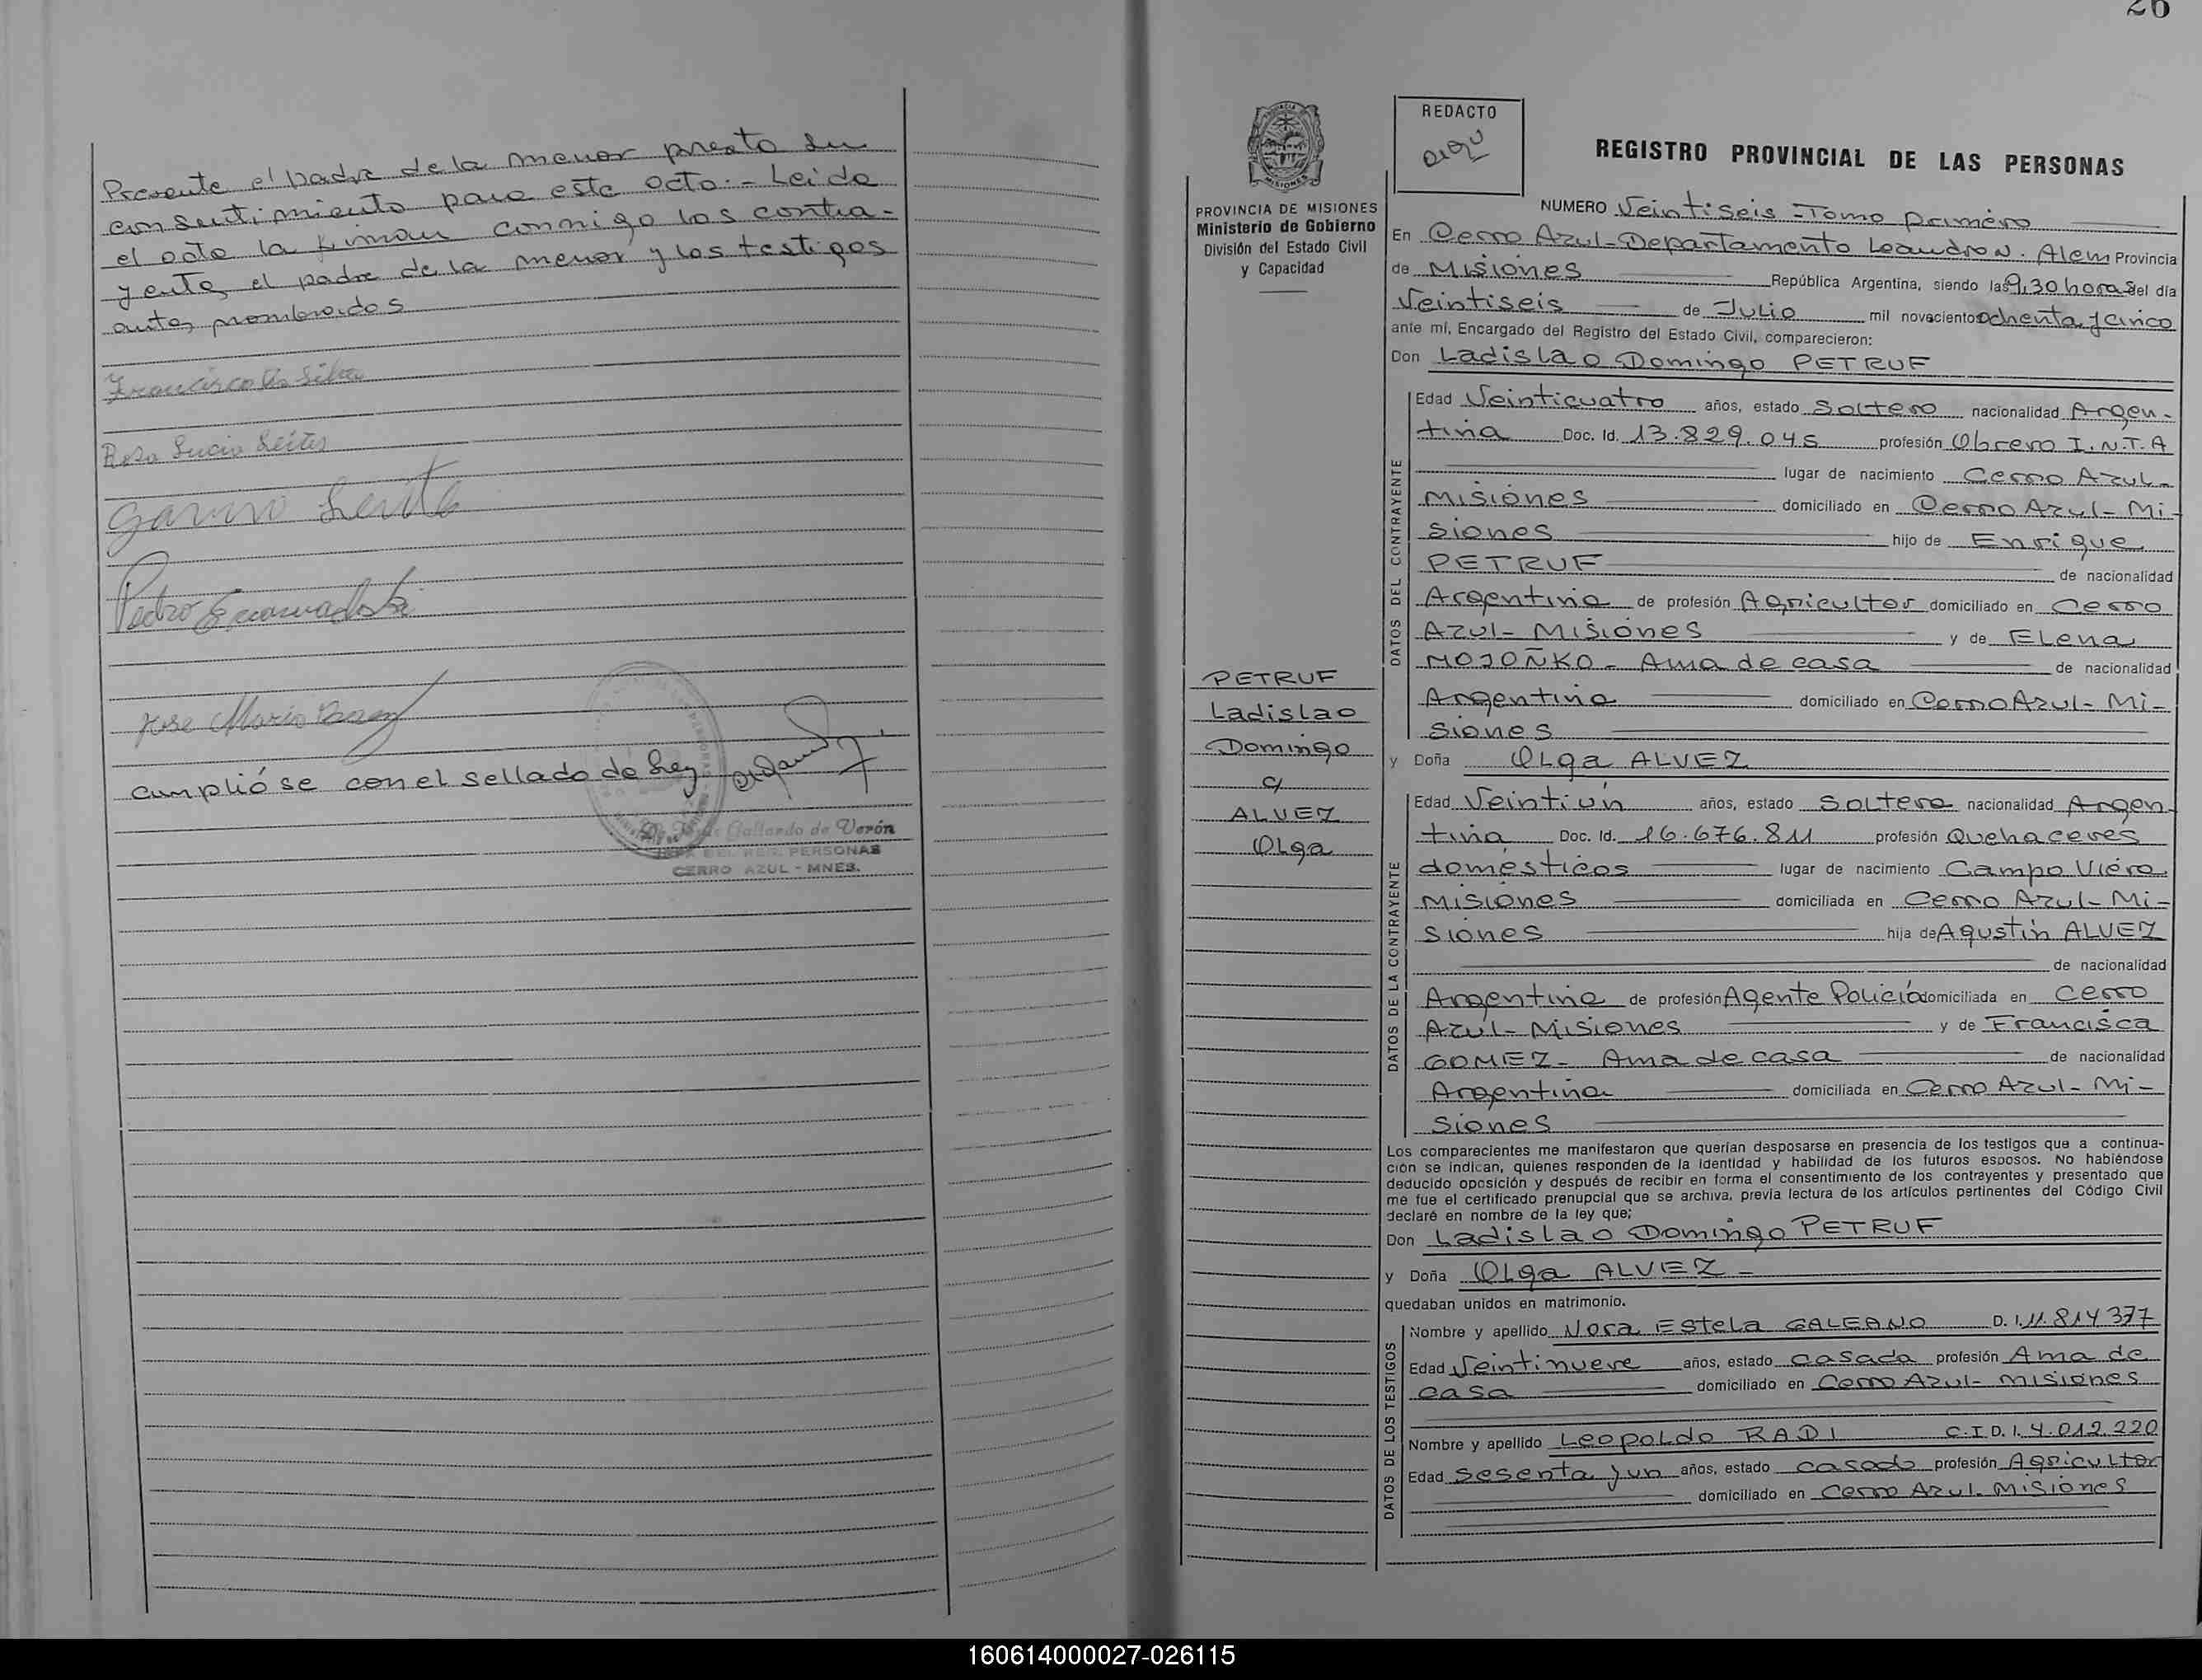 Presente el padre de la menor presta su
consentimiento para este acto.- Leida
el acta la firman conmigo los contra-
yentes, el padre de la menor y los testigos
antes nombrados
Rosa Lucia Leites
Pedro
Jose Maria
Cumplióse con el sellado de Ley
Gallardo de Verón
JEFA DEL REG. PERSONAS
CERRO AZUL - MNES.
26
REDACTO
REGISTRO PROVINCIAL DE LAS PERSONAS
PROVINCIA DE MISIONES
Ministerio de Gobierno
División del Estado Civil
y Capacidad
NUMERO Veintiseis - Tomo primero
En Cerro Azul - Departamento Leandro N. Alem Provincia
de Misiones República Argentina, siendo las 9,30 horas del día
Veintiseis de Julio mil novecientos ochenta y cinco
ante mí, Encargado del Registro del Estado Civil, comparecieron:
Don Ladislao Domingo PETRUF
DATOS DEL CONTRAYENTE
Edad Veinticuatro años, estado Soltero nacionalidad Argen-
tina Doc. Id. 13.829.045 profesión Obrero I.N.T.A
lugar de nacimiento Cerro Azul-
Misiones domiciliado en Cerro Azul- Mi-
siones hijo de Enrique
PETRUF de nacionalidad
Argentina de profesión Agricultor domiciliado en Cerro
Azul- Misiones y de Elena
MOJOÑKO - Ama de casa de nacionalidad
Argentina domiciliado en Cerro Azul- Mi-
siones
PETRUF
Ladislao
Domingo
c/
ALVEZ
Olga
y Doña Olga ALVEZ
DATOS DE LA CONTRAYENTE
Edad Veintiún años, estado Soltera nacionalidad Argen-
tina Doc. Id. 16.676.811 profesión Quehaceres
domésticos lugar de nacimiento Campo Viera
Misiones domiciliada en Cerro Azul- Mi-
siones hija de Agustin ALVEZ
de nacionalidad
Argentina de profesión Agente Policía domiciliada en Cerro
Azul- Misiones y de Francisca
GOMEZ - Ama de casa de nacionalidad
Argentina domiciliada en Cerro Azul- Mi-
siones
Los comparecientes me manifestaron que querían desposarse en presencia de los testigos que a continua-
ción se indican, quienes responden de la identidad y habilidad de los futuros esposos. No habiéndose
deducido oposición y después de recibir en forma el consentimiento de los contrayentes y presentado que
me fue el certificado prenupcial que se archiva, previa lectura de los artículos pertinentes del Código Civil
declaré en nombre de la ley que;
Don Ladislao Domingo PETRUF
y Doña Olga ALVEZ -
quedaban unidos en matrimonio.
DATOS DE LOS TESTIGOS
Nombre y apellido Nora Estela GALEANO D. I. 11.814377
Edad Veintinueve años, estado casada profesión Ama de
casa domiciliado en Cerro Azul- Misiones
Nombre y apellido Leopoldo RADI C.I D. I. 4.012.220
Edad Sesenta y un años, estado casado profesión Agricultor
domiciliado en Cerro Azul. Misiones
160614000027-026115